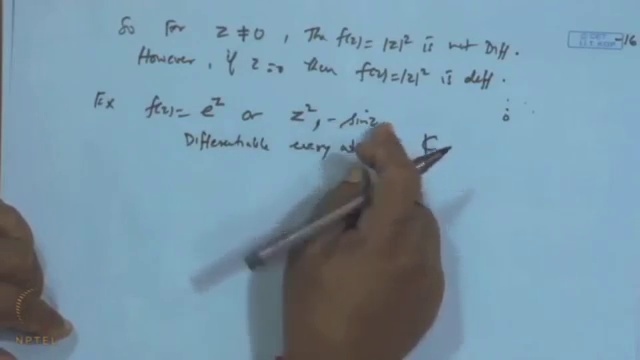 So For Z ≠ 0, The f(z) = |z|² is not Diff.
However, if z = 0 then f(z) = |z|² is diff.
Ex f(z) = e^z or z², - sin z
Differentiable every
NPTEL